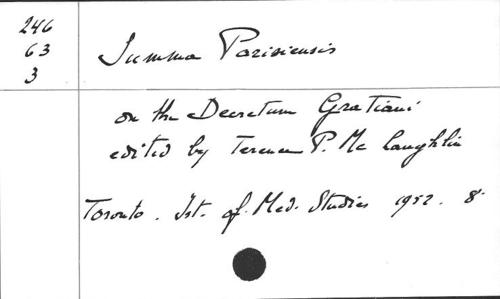 246
63
3
Summa Parisiensis
on the Decretum Gratiani
edited by Terence P. Mc Laughlin
Toronto. Ist. of Med. Studies 1952. 8°